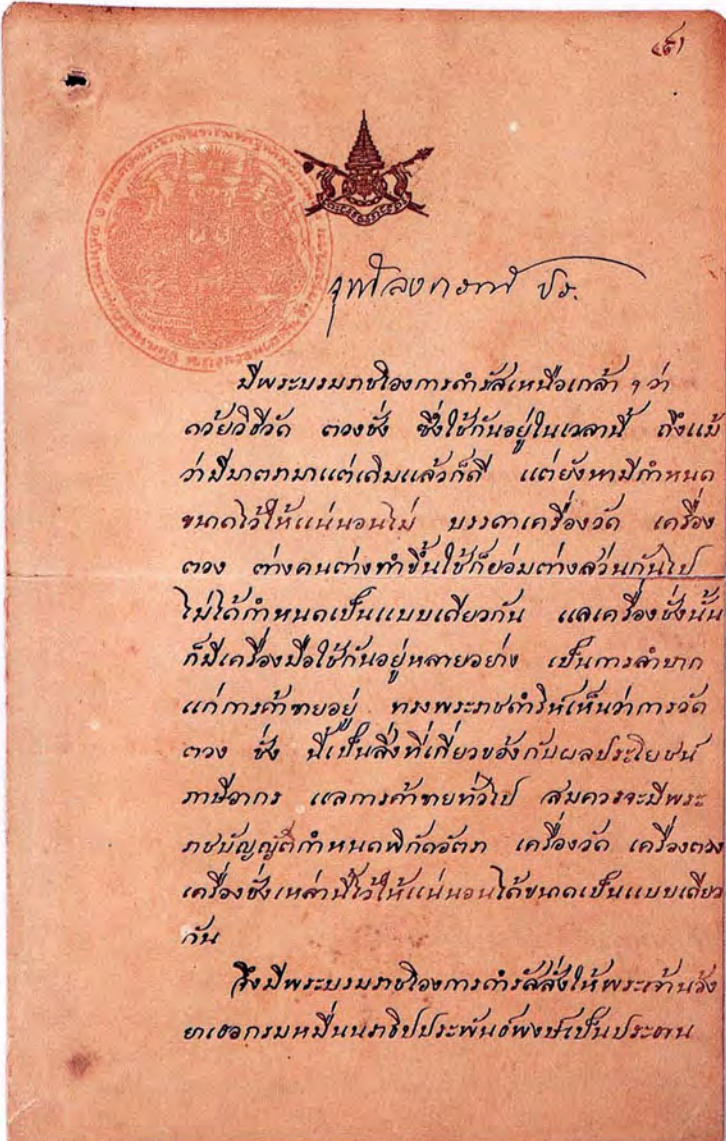 จุฬาลงกรณ์ ปร.
มีพระบรมราชโองการดำรัสเหนือเกล้า ฯ ว่า
ด้วยวิธีวัด ตวงชั่ง ซึ่งใช้กันอยู่ในเวลานี้ ถึงแม้
ว่ามีมาตรามาแต่เดิมแล้วก็ดี แต่ยังหามีกำหนด
ขนาดไว้ให้แน่นอนไม่ บรรดาเครื่องวัด เครื่อง
ตวง ต่างคนต่างทำขึ้นใช้ก็ย่อมต่างส่วนกันไป
ไม่ได้กำหนดเป็นแบบเดียวกัน แลเครื่องชั่งนั้น
ก็มีเครื่องมือใช้กันอยู่หลายอย่าง เป็นการลำบาก
แก่การค้าขายอยู่ ทรงพระราชดำริห์เห็นว่าการวัด
ตวง ชั่ง นี้เป็นสิ่งที่เกี่ยวข้องกับผลประโยชน์
ภาษีอากร แลการค้าขายทั่วไป สมควรจะมีพระ
ราชบัญญัติกำหนดพิกัดอัตรา เครื่องวัด เครื่องตวง
เครื่องชั่งเหล่านี้ไว้ให้แน่นอนได้ขนาดเป็นแบบเดียว
กัน
จึงมีพระบรมราชโองการดำรัสสั่งให้พระเจ้าน้อง
ยาเธอกรมหมื่นนราธิปประพันธ์พงษ์เป็นประธาน